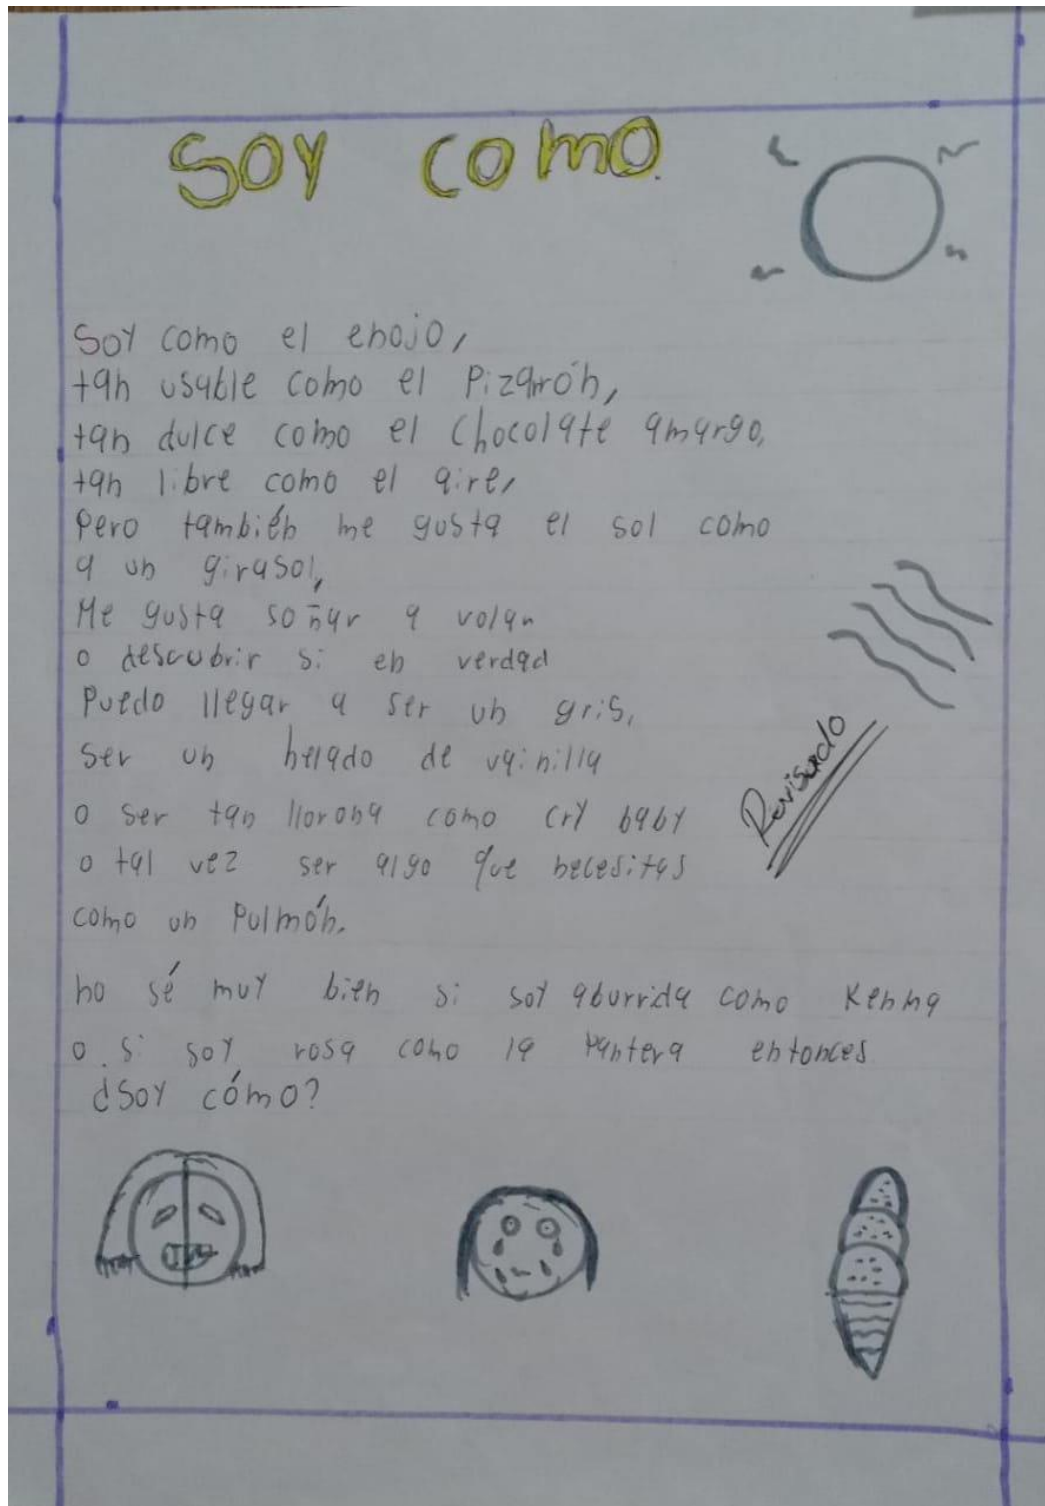 Soy como.
Soy como el enojo,
tan usable como el Pizarrón,
tan dulce como el Chocolate amargo,
tan libre como el aire,
Pero también me gusta el sol como
a un girasol,
Me gusta soñar a volar
o descubrir si en verdad
Puedo llegar a ser un gris,
ser un helado de vainilla
o ser tan llorona como cry baby
o tal vez ser algo que necesitas
como un Pulmón.
no sé muy bien si soy aburrida como Kenma
o si soy rosa como la Pantera entonces
¿Soy cómo?
Revisado